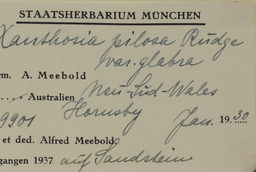 STAATSHERBARIUM MÜNCHEN
Xanthosia pilosa Rudge
var. glabra
rm. A. Meebold
Australien Neu-Süd-Wales
9901 Hornsby Jan. 1930
et ded. Alfred Meebold
gangen 1937 auf Sandstein